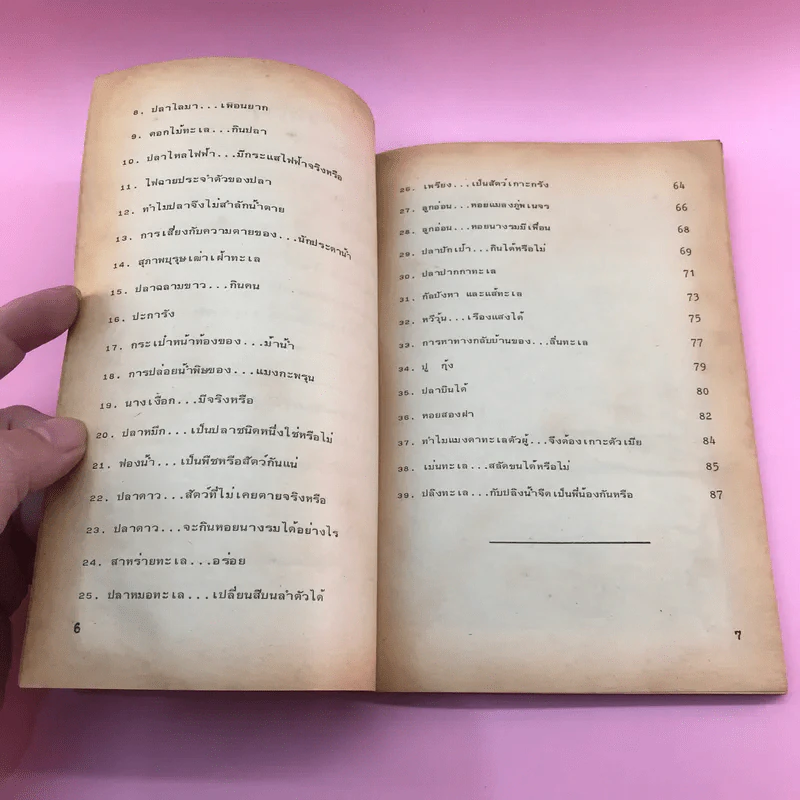 8. ปลาไลมา...เพื่อนยาก
9. ดอกไม้ทะเล...กินปลา
10. ปลาไหลไฟฟ้า...มีกระแสไฟฟ้าจริงหรือ
11. ไฟฉายประจำตัวของปลา
12. ทำไมปลาจึงไม่สำลักน้ำตาย
13. การเสี่ยงกับความตายของ...นักประดาน้ำ
14. สุภาพบุรุษเฒ่าเฝ้าทะเล
15. ปลาฉลามขาว...กินคน
16. ปะการัง
17. กระเป๋าหน้าท้องของ...ม้าน้ำ
18. การปล่อยน้ำพิษของ...แมงกะพรุน
19. นางเงือก...มีจริงหรือ
20. ปลาหมึก...เป็นปลาชนิดหนึ่งใช่หรือไม่
21. ฟองน้ำ...เป็นพืชหรือสัตว์กันแน่
22. ปลาดาว...สัตว์ที่ไม่เคยตายจริงหรือ
23. ปลาดาว...จะกินหอยนางรมได้อย่างไร
24. สาหร่ายทะเล...อร่อย
25. ปลาหมอทะเล...เปลี่ยนสีบนลำตัวได้
6
26. เพรียง...เป็นสัตว์เกาะกรัง 64
27. ลูกอ่อน...หอยแมลงภู่พเนจร 66
28. ลูกอ่อน...หอยนางรมมีเพื่อน 68
29. ปลาปักเป้า...กินได้หรือไม่ 69
30. ปลาปากกาทะเล 71
31. กัลปังหา และแส้ทะเล 73
32. หวีวุ้น...เรืองแสงได้ 75
33. การหาทางกลับบ้านของ...ลิ่นทะเล 77
34. ปู กุ้ง 79
35. ปลาบินได้ 80
36. หอยสองฝา 82
37. ทำไมแมงดาทะเลตัวผู้...จึงต้องเกาะตัวเมีย 84
38. เม่นทะเล...สลัดขนได้หรือไม่ 85
39. ปลิงทะเล...กับปลิงน้ำจืดเป็นพี่น้องกันหรือ 87
7